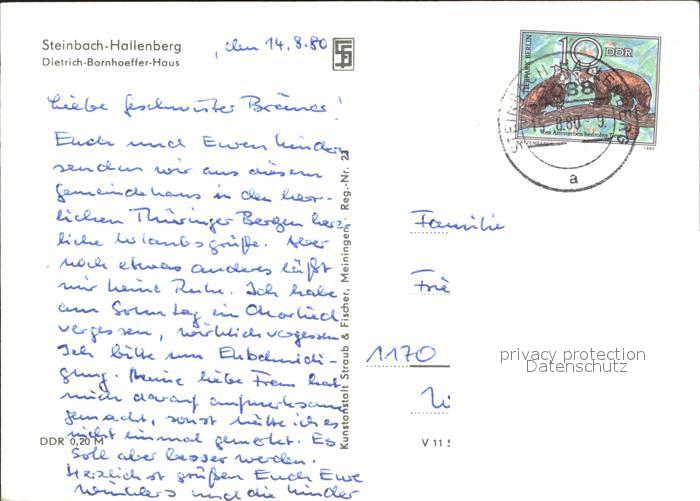 Steinbach-Hallenberg
Dietrich-Bornhoeffer-Haus
, den 14.8.80
Liebe Geschwister Bräuner!
Euch und Euren Kindern
senden wir aus diesem
Gemeindehaus in den herr-
lichen Thüringer Bergen herz-
liche Urlaubsgrüße. Aber
noch etwas anderes läßt
mir keine Ruhe. Ich habe
am Sonntag ein Chorlied
vergessen, wirklich vergessen
Ich bitte um Entschuldi-
gung. Meine liebe Frau hat
mich darauf aufmerksam
gemacht, sonst hätte ich es
nicht einmal gemerkt. Es
soll aber besser werden.
Herzlichst grüßen Euch Eure
und die Kinder
DDR 0,20 M
Kunstanstalt Straub & Fischer, Meiningen, Reg.-Nr. 22
TIERPARK BERLIN
10 DDR
Vom Aussterben bedrohte Tiere
1980
a
Familie
Frie
1170
V 11
privacy protection
Datenschutz